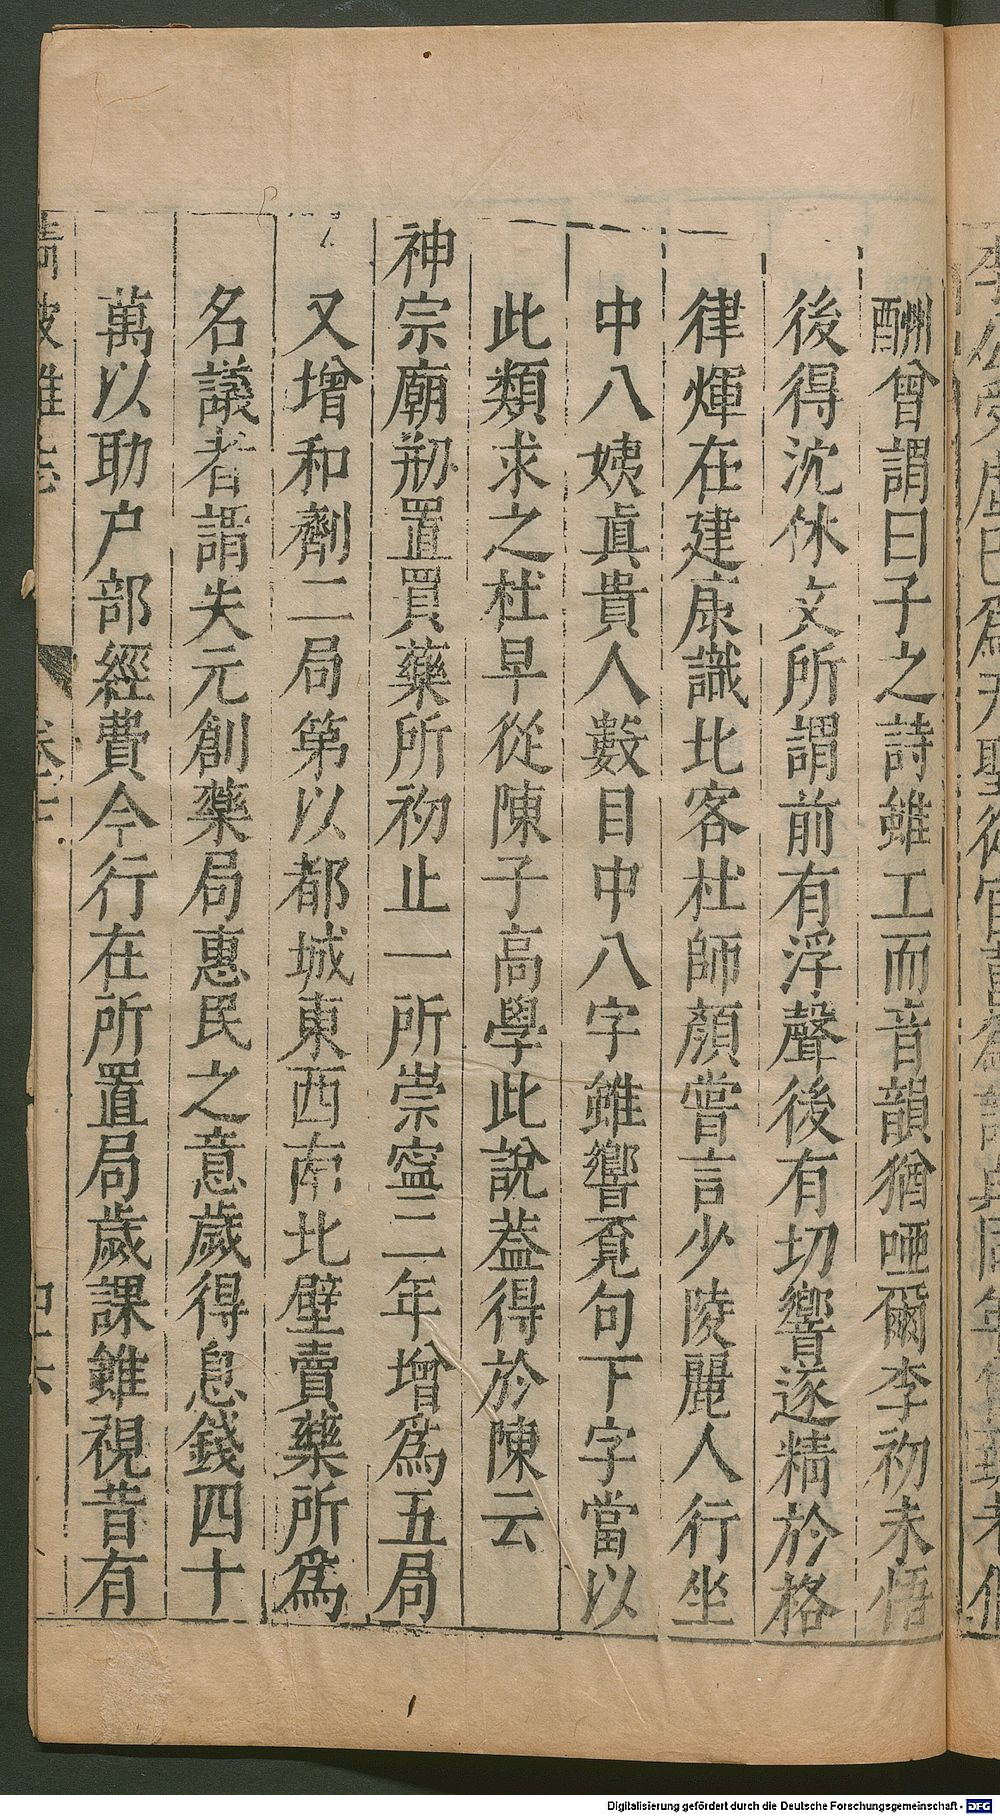 酬曾謂曰子之詩雖工而音韻猶啞爾李初未悟
後得沈休文所謂前有浮聲後有切響遂精於格
律煇在建康識北客杜師顏嘗言少陵麗人行坐
中八姨真貴人數目中八字雖響覔句下字當以
此類求之杜早從陳子高學此說葢得於陳云
神宗廟剏置買藥所初止一所崇寧二年增爲五局
又增和劑二局第以都城東西南北壁賣藥所爲
名議者謂失元創藥局惠民之意歲得息錢四十
萬以助户部經費今行在所置局歲課雖視昔有
清波雜志
Digitalisierung gefördert durch die Deutsche Forschungsgemeinschaft - DFG